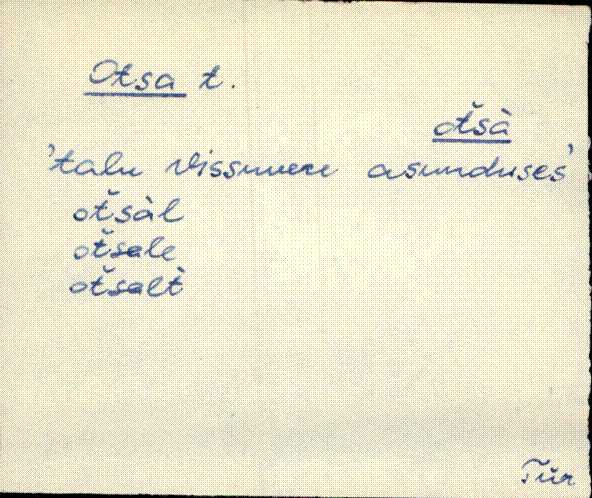 Otsa t.
ot̆sà
'talu Vissuvere asunduses'
ot̆sàl
ot̆sale
ot̆salt̀
Tür